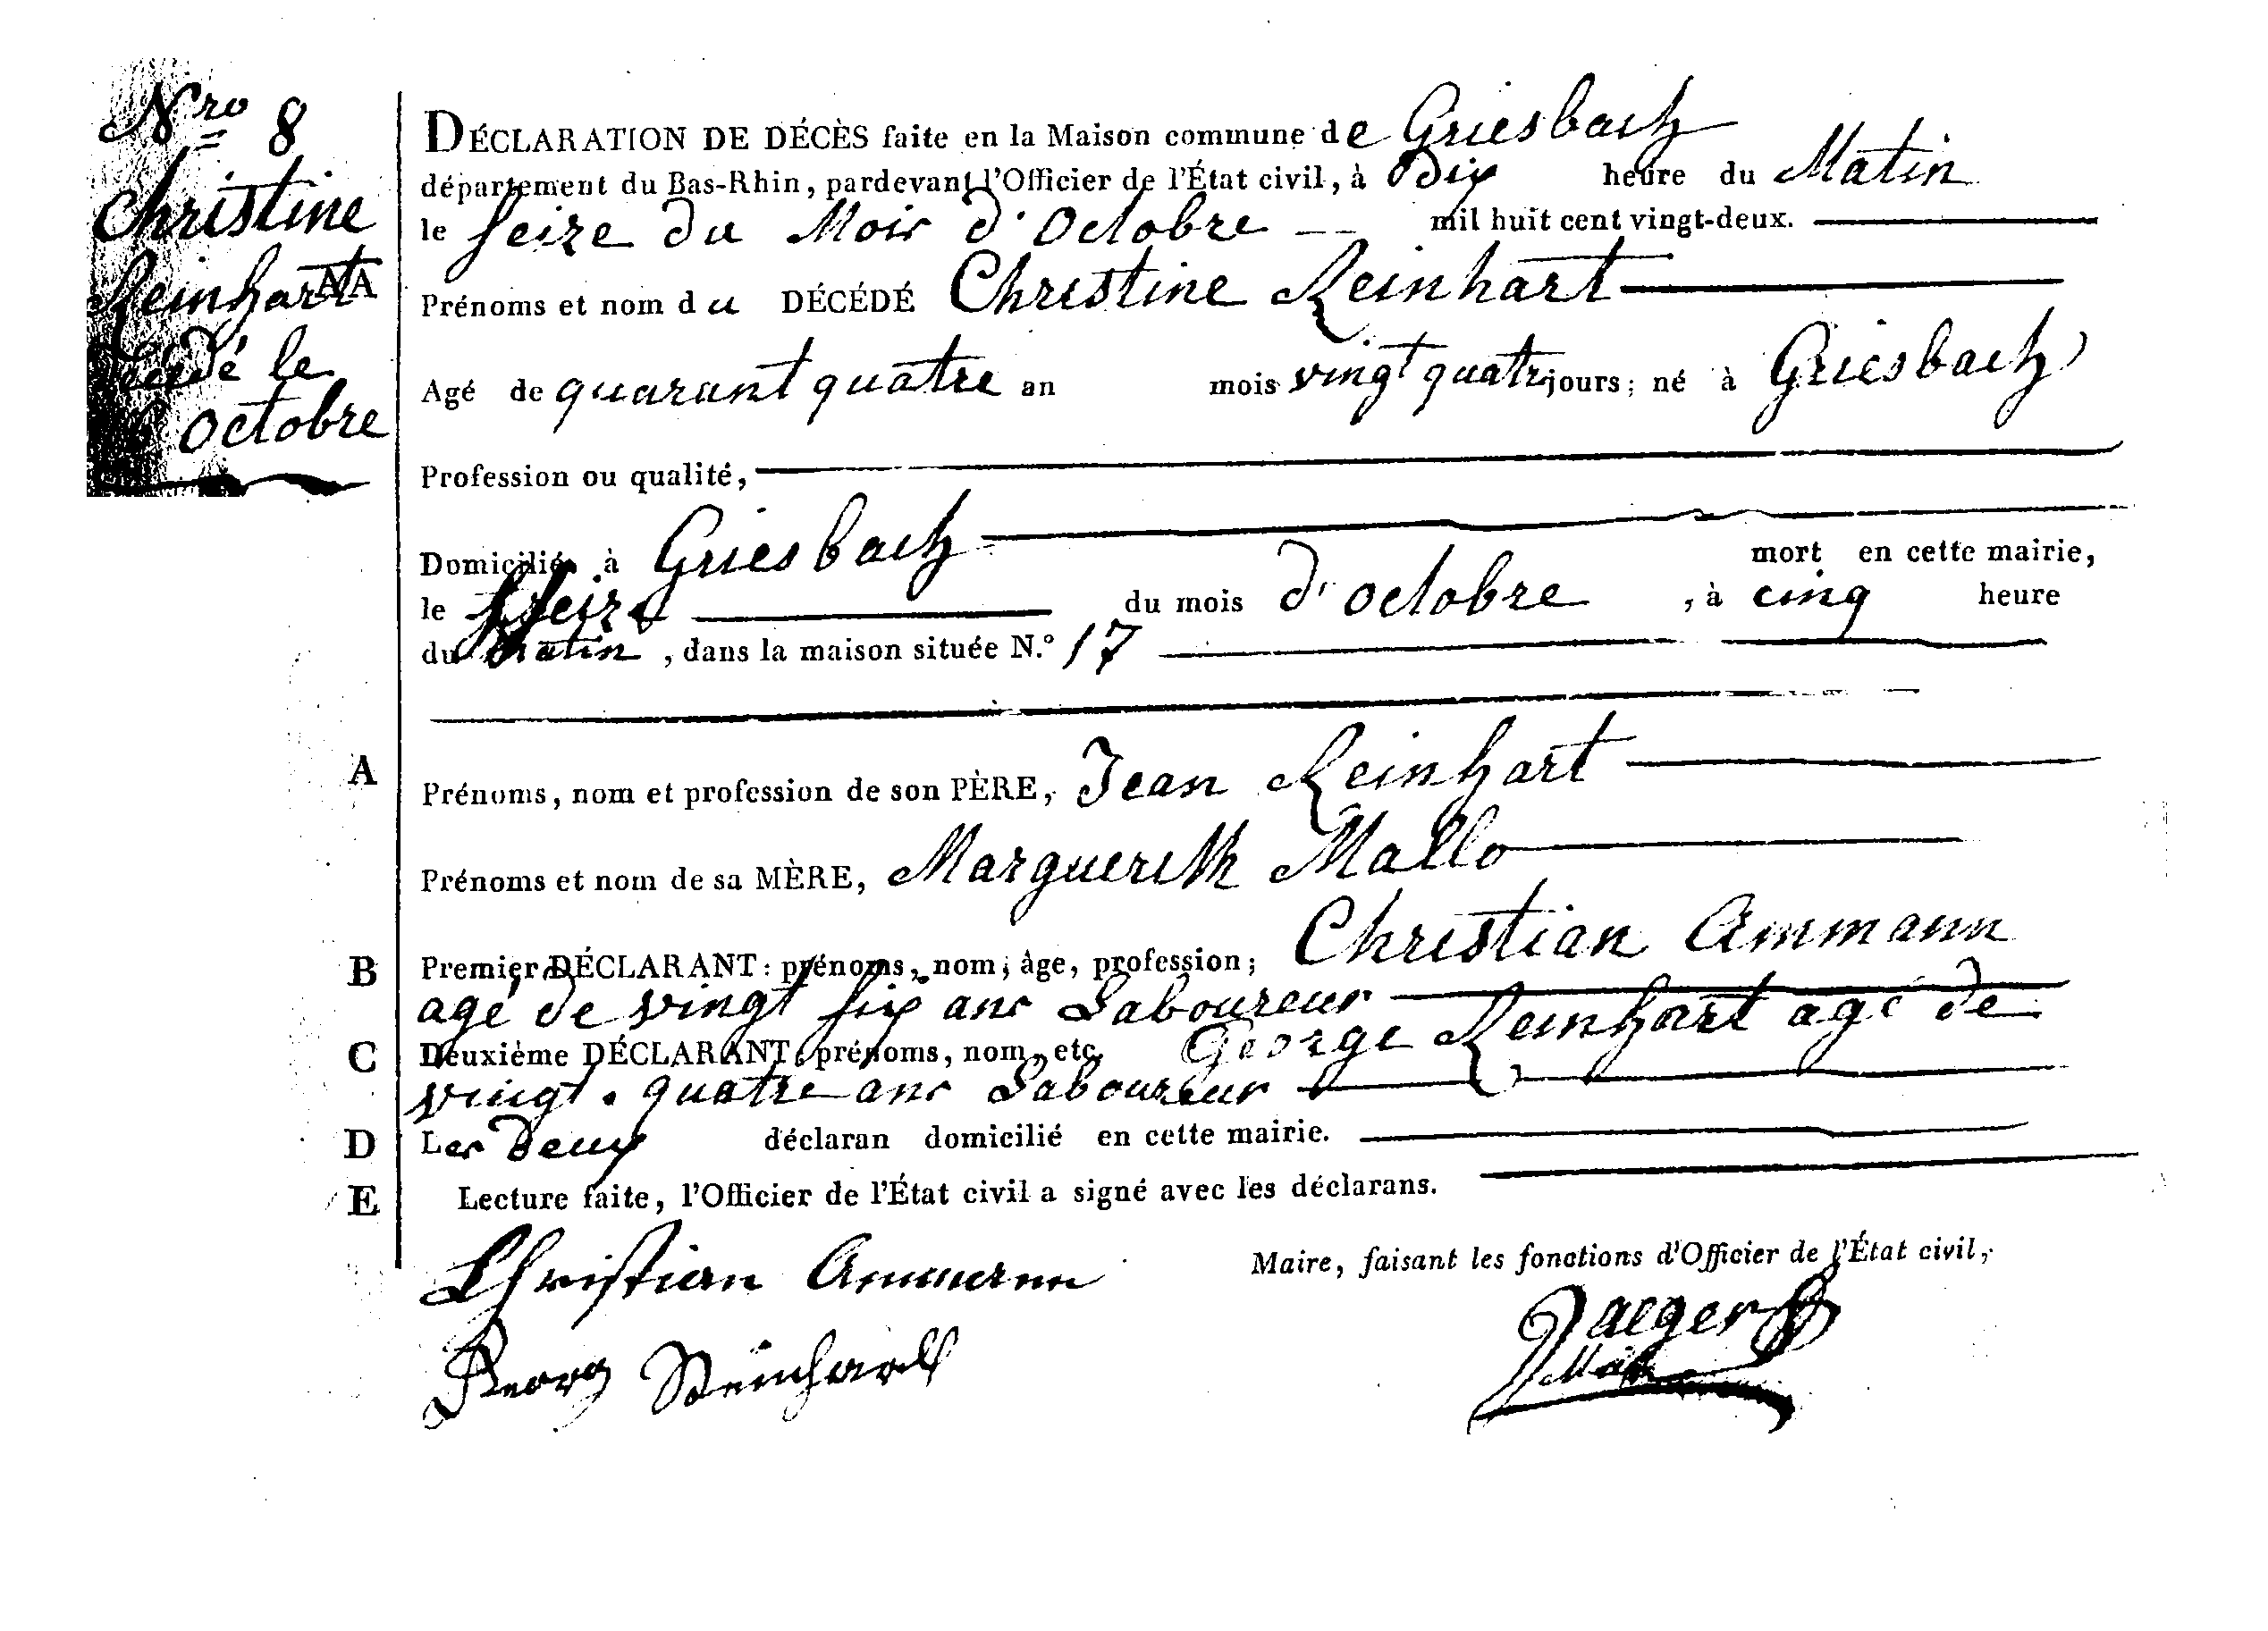 Nro 8
Christine
Reinhart
AA
décédé le
octobre
DÉCLARATION DE DÉCÈS faite en la Maison commune de Griesbach
département du Bas-Rhin, pardevant l'Officier de l'État civil, à Dix heure du Matin
le seize du Mois d'Octobre -- mil huit cent vingt-deux.
Prénoms et nom du DÉCÉDÉ Christine Reinhart
Agé de quarant quatre an mois vingt quatr jours; né à Griesbach
Profession ou qualité,
Domicilié à Griesbach mort en cette mairie,
le seize du mois d'octobre, à cinq heure
du Matin, dans la maison située N.º 17
A
Prénoms, nom et profession de son PÈRE, Jean Reinhart
Prénoms et nom de sa MÈRE, Marguerith Mallo
B Premier DÉCLARANT: prénoms, nom, âge, profession; Christian Ammann
agé de vingt six ans Laboureur
C Deuxième DÉCLARANT, prénoms, nom, etc. George Reinhart agé de
vingt. quatre ans Laboureur
D Les deux déclaran domicilié en cette mairie.
E Lecture faite, l'Officier de l'État civil a signé avec les déclarans.
Christian Ammann
Maire, faisant les fonctions d'Officier de l'État civil,
Georg Reinhart
Jaeger